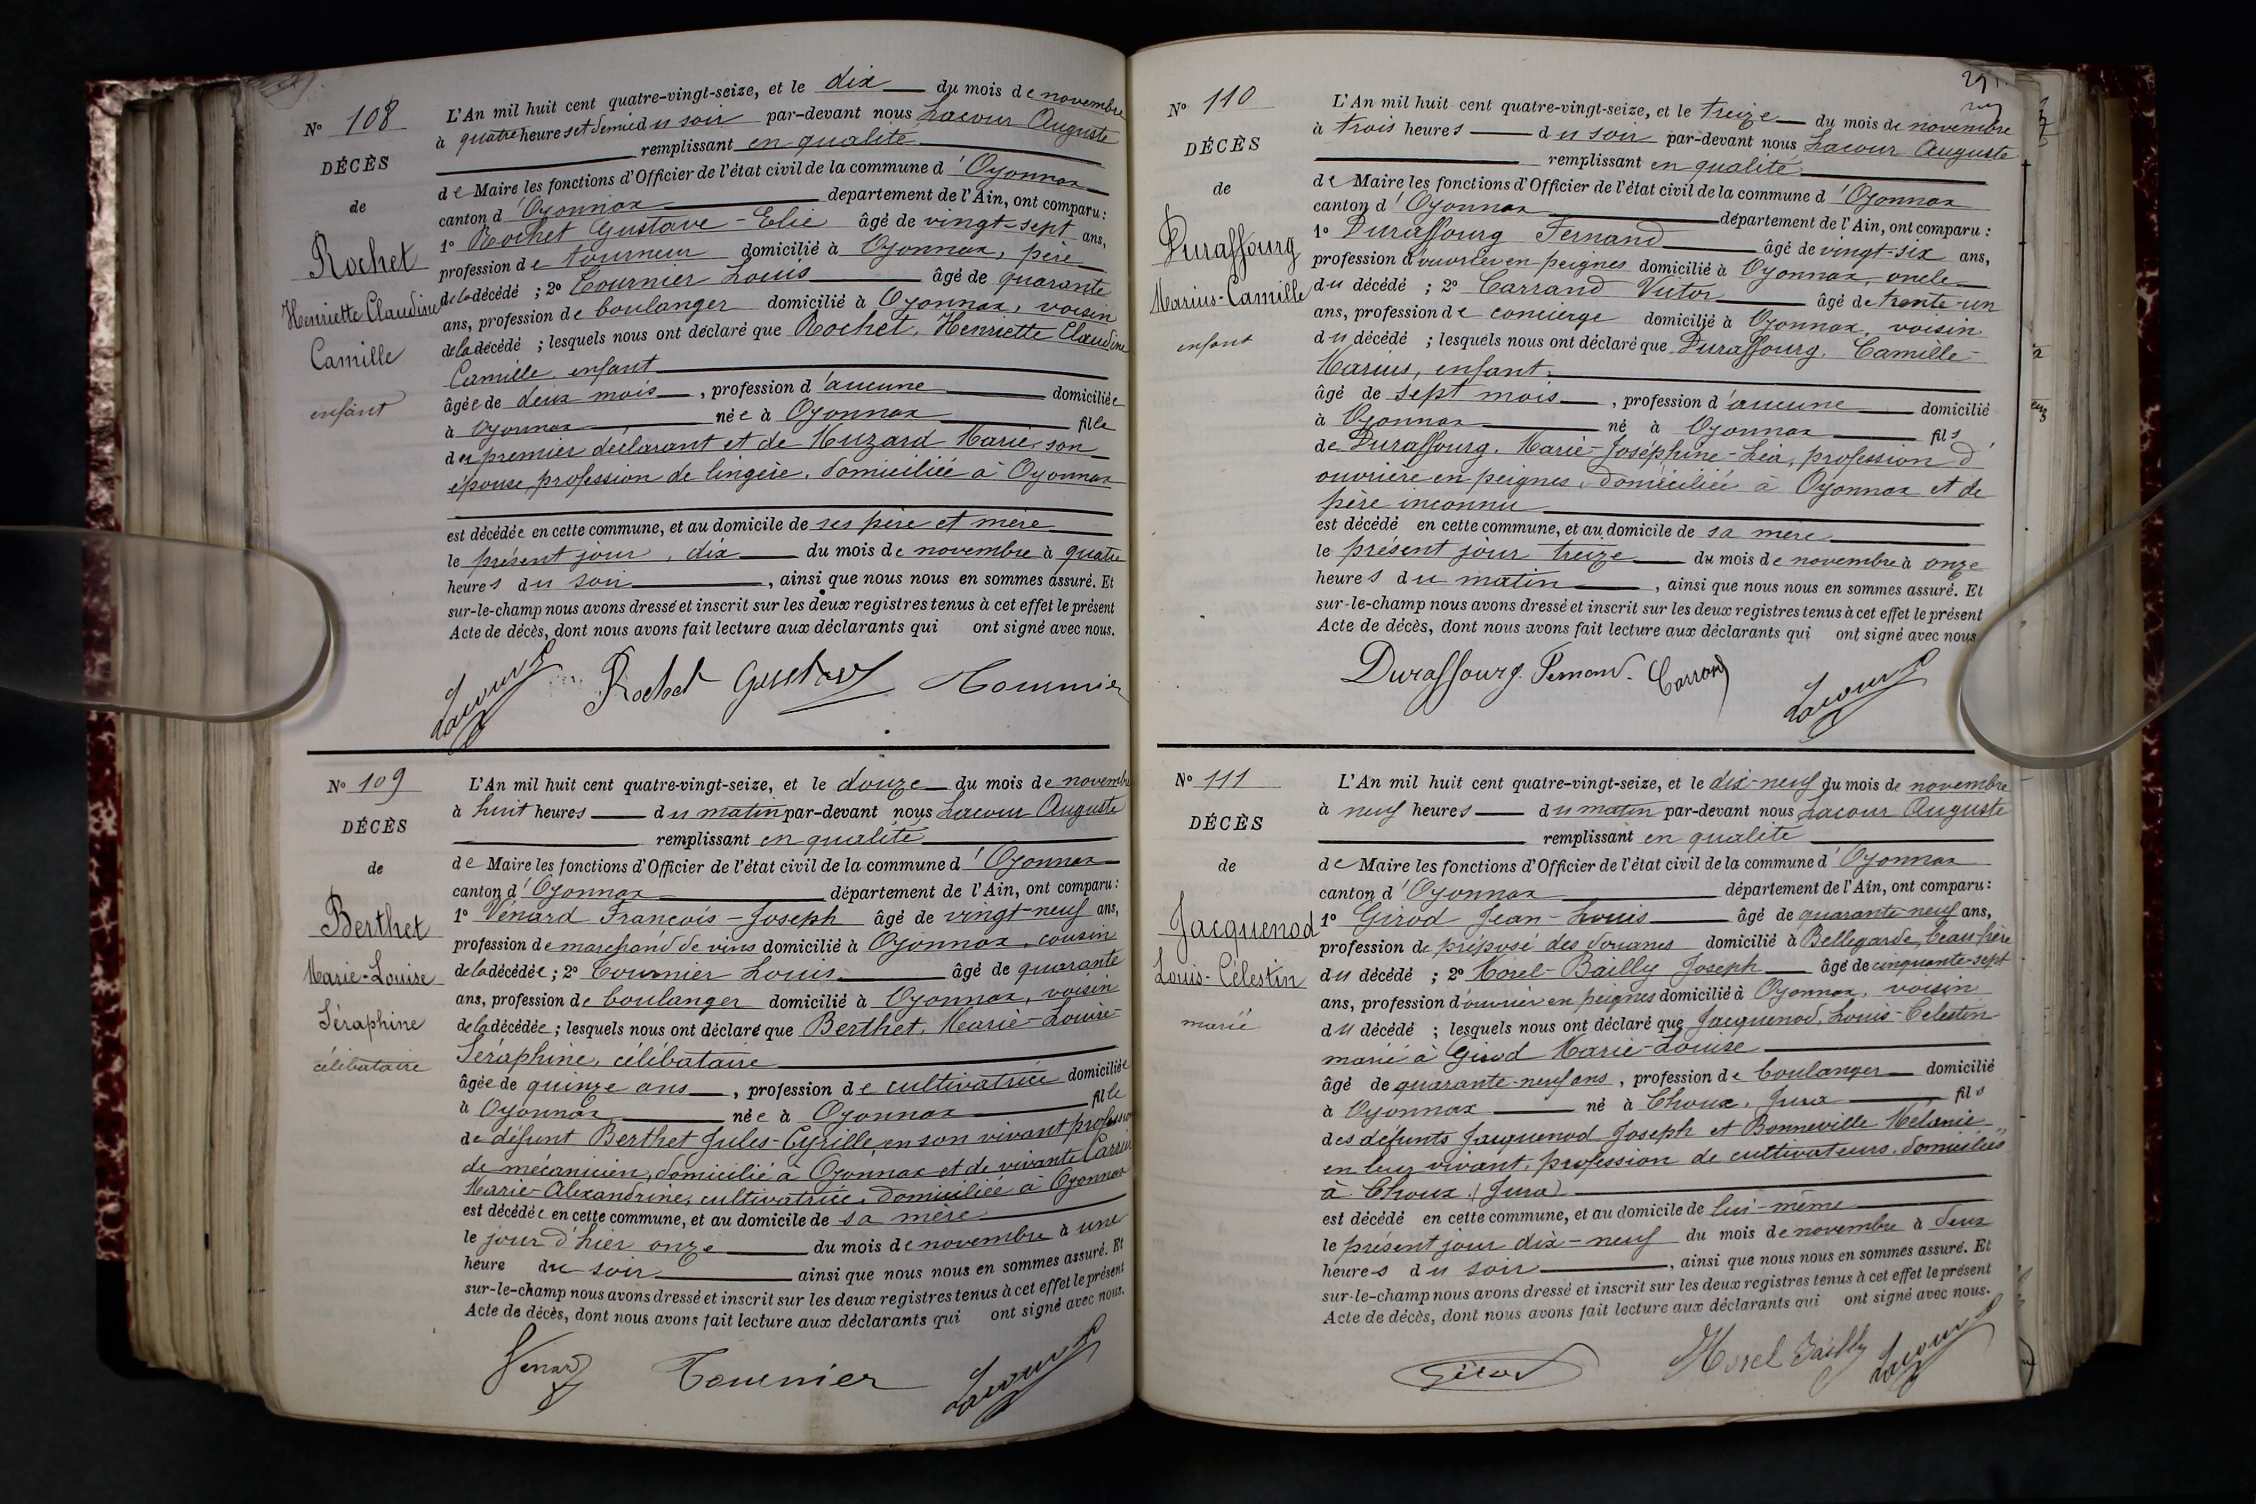 N° 108
DÉCÈS
de
Rochet
Henriette Claudine
Camille
enfant
L'An mil huit cent quatre-vingt-seize, et le dix du mois de novembre
à quatre heures et demie du soir par-devant nous Lacour Auguste
remplissant en qualité
de Maire les fonctions d'Officier de l'état civil de la commune d'Oyonnax
canton d'Oyonnax département de l'Ain, ont comparu :
1° Rochet Gustave-Elie âgé de vingt-sept ans,
profession de tourneur domicilié à Oyonnax, père
de la décédé ; 2° Tournier Louis âgé de quarante
ans, profession de boulanger domicilié à Oyonnax, voisin
de la décédé ; lesquels nous ont déclaré que Rochet, Henriette Claudine
Camille, enfant
âgée de deux mois, profession d'aucune domiciliée
à Oyonnax née à Oyonnax fille
du premier déclarant et de Muzard Marie, son
épouse, profession de lingère, domiciliée à Oyonnax
est décédée en cette commune, et au domicile de ses père et mère
le présent jour, dix du mois de novembre à quatre
heures du soir, ainsi que nous nous en sommes assuré. Et
sur-le-champ nous avons dressé et inscrit sur les deux registres tenus à cet effet le présent
Acte de décès, dont nous avons fait lecture aux déclarants qui ont signé avec nous.
Lacour Rochet Gustave Tournier
N° 109
DÉCÈS
de
Berthet
Marie-Louise
Séraphine
célibataire
L'An mil huit cent quatre-vingt-seize, et le douze du mois de novembre
à huit heures du matin par-devant nous Lacour Auguste
remplissant en qualité
de Maire les fonctions d'Officier de l'état civil de la commune d'Oyonnax
canton d'Oyonnax département de l'Ain, ont comparu :
1° Vénard François-Joseph âgé de vingt-neuf ans,
profession de marchand de vins domicilié à Oyonnax, cousin
de la décédée ; 2° Tournier Louis âgé de quarante
ans, profession de boulanger domicilié à Oyonnax, voisin
de la décédée ; lesquels nous ont déclaré que Berthet, Marie-Louise-
Séraphine, célibataire
âgée de quinze ans, profession de cultivatrice domiciliée
à Oyonnax née à Oyonnax fille
de défunt Berthet Jules-Cyrille, en son vivant profession
de mécanicien, domicilié à Oyonnax et de vivante
Marie-Alexandrine, cultivatrice, domiciliée à Oyonnax
est décédée en cette commune, et au domicile de sa mère
le jour d'hier onze du mois de novembre à une
heure du soir ainsi que nous nous en sommes assuré. Et
sur-le-champ nous avons dressé et inscrit sur les deux registres tenus à cet effet le présent
Acte de décès, dont nous avons fait lecture aux déclarants qui ont signé avec nous.
Venard Tournier Lacour
N° 110
DÉCÈS
de
Duraffourg
Marius-Camille
enfant
L'An mil huit cent quatre-vingt-seize, et le treize du mois de novembre
à trois heures du soir par-devant nous Lacour Auguste
remplissant en qualité
de Maire les fonctions d'Officier de l'état civil de la commune d'Oyonnax
canton d'Oyonnax département de l'Ain, ont comparu :
1° Duraffourg Fernand âgé de vingt-six ans,
profession d'ouvrier en peignes domicilié à Oyonnax, oncle
du décédé ; 2° Carrand Victor âgé de trente-un
ans, profession de concierge domicilié à Oyonnax, voisin
du décédé ; lesquels nous ont déclaré que Duraffourg, Camille-
Marius, enfant
âgé de sept mois, profession d'aucune domicilié
à Oyonnax né à Oyonnax fils
de Duraffourg, Marie-Joséphine-Léa, profession d'
ouvrière en peignes, domiciliée à Oyonnax et de
père inconnu
est décédé en cette commune, et au domicile de sa mère
le présent jour treize du mois de novembre à onze
heures du matin, ainsi que nous nous en sommes assuré. Et
sur-le-champ nous avons dressé et inscrit sur les deux registres tenus à cet effet le présent
Acte de décès, dont nous avons fait lecture aux déclarants qui ont signé avec nous
Duraffourg Fernand. Carrand Lacour
N° 111
DÉCÈS
de
Jacquenod
Louis-Célestin
marié
L'An mil huit cent quatre-vingt-seize, et le dix-neuf du mois de novembre
à neuf heures du matin par-devant nous Lacour Auguste
remplissant en qualité
de Maire les fonctions d'Officier de l'état civil de la commune d'Oyonnax
canton d'Oyonnax département de l'Ain, ont comparu :
1° Girod Jean-Louis âgé de quarante-neuf ans,
profession de préposé des douanes domicilié à Bellegarde, beau-frère
du décédé ; 2° Morel-Bailly Joseph âgé de cinquante-sept
ans, profession d'ouvrier en peignes domicilié à Oyonnax, voisin
du décédé ; lesquels nous ont déclaré que Jacquenod, Louis-Celestin
marié à Girod Marie-Louise
âgé de quarante-neuf ans, profession de boulanger domicilié
à Oyonnax né à Choux, Jura fils
des défunts Jacquenod Joseph et Bonneville Mélanie
en leur vivant, profession de cultivateurs, domiciliés
à Choux (Jura)
est décédé en cette commune, et au domicile de lui-même
le présent jour dix-neuf du mois de novembre à deux
heures du soir, ainsi que nous nous en sommes assuré. Et
sur-le-champ nous avons dressé et inscrit sur les deux registres tenus à cet effet le présent
Acte de décès, dont nous avons fait lecture aux déclarants qui ont signé avec nous.
Girod Morel Bailly Lacour